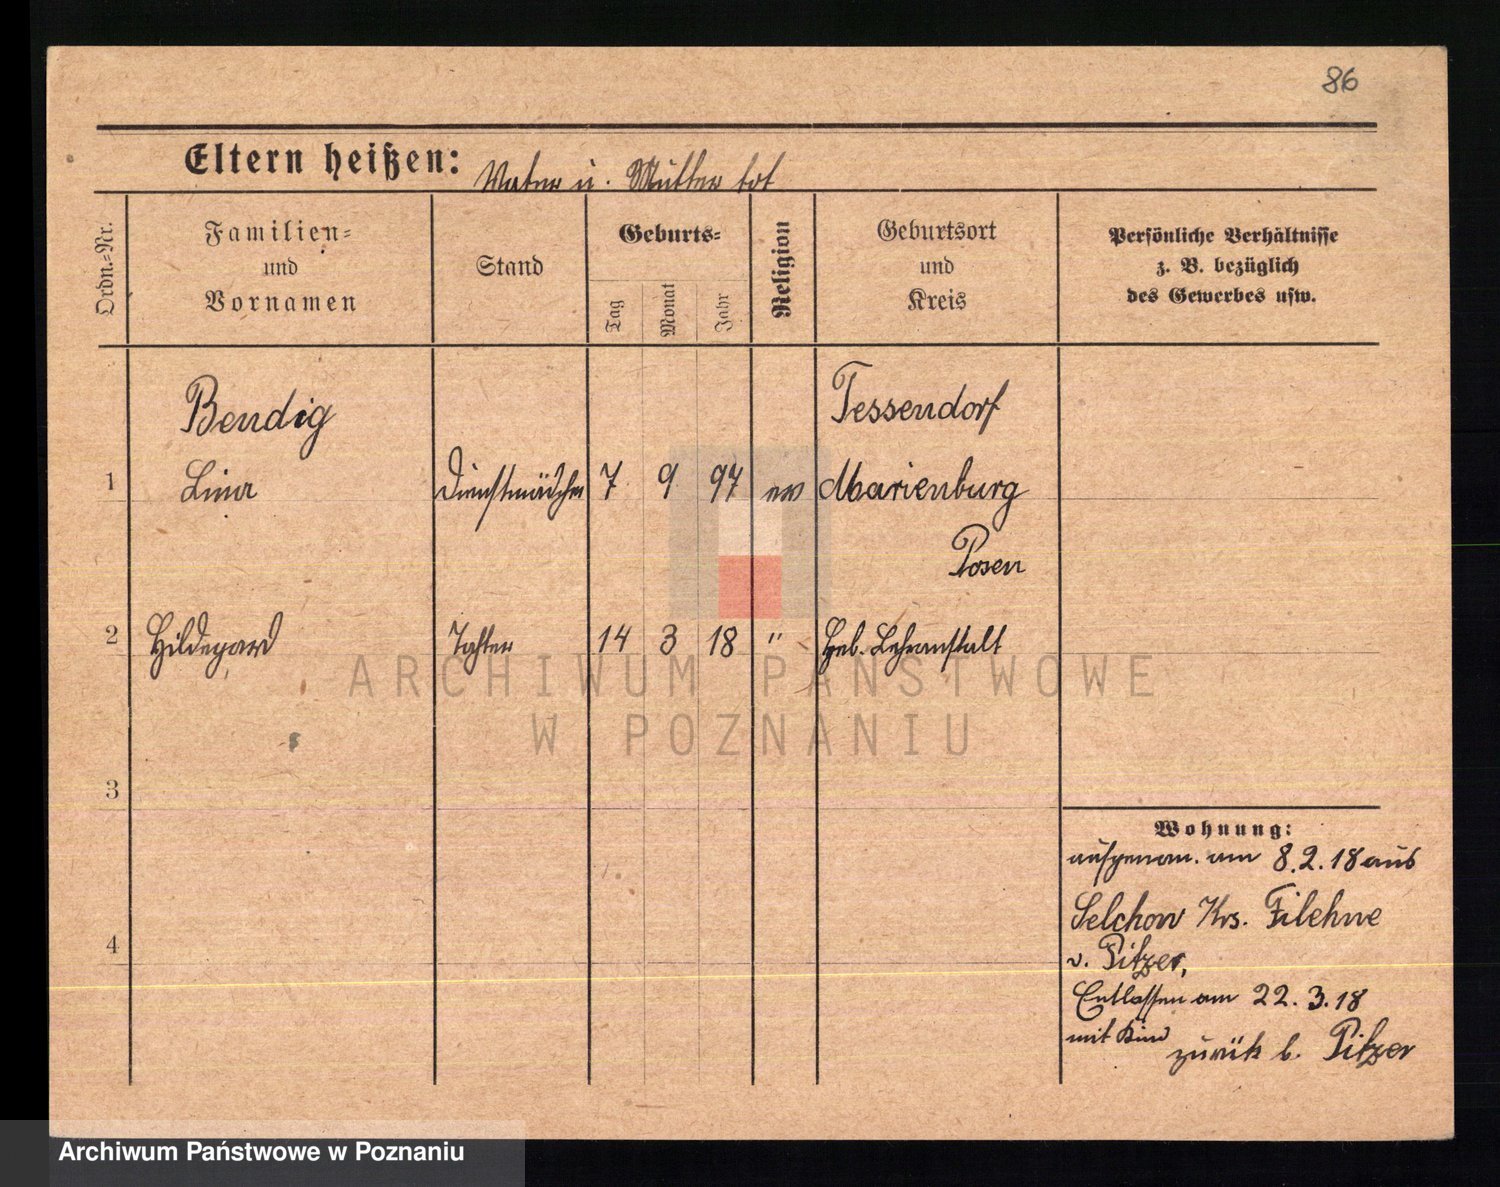 86
Eltern heißen: Vater u. Mutter tot
Ordn.-Nr.
Familien-
und
Vornamen
Stand
Geburts-
Tag
Monat
Jahr
Religion
Geburtsort
und
Kreis
Persönliche Verhältnisse
z. B. bezüglich
des Gewerbes usw.
Bendig
Tessendorf
1 Lina Dienstmädchen 7 9 97 ev Marienburg
Posen
2 Hildegard Tochter 14 3 18 " Heb. Lehranstalt
3
4
Wohnung:
aufgenom. am 8.2.18 aus
Selchow Krs. Filehne
v. Pitzer,
Entlassen am 22.3.18
mit Kind zurück b. Pitzer
ARCHIWUM PAŃSTWOWE
W POZNANIU
Archiwum Państwowe w Poznaniu